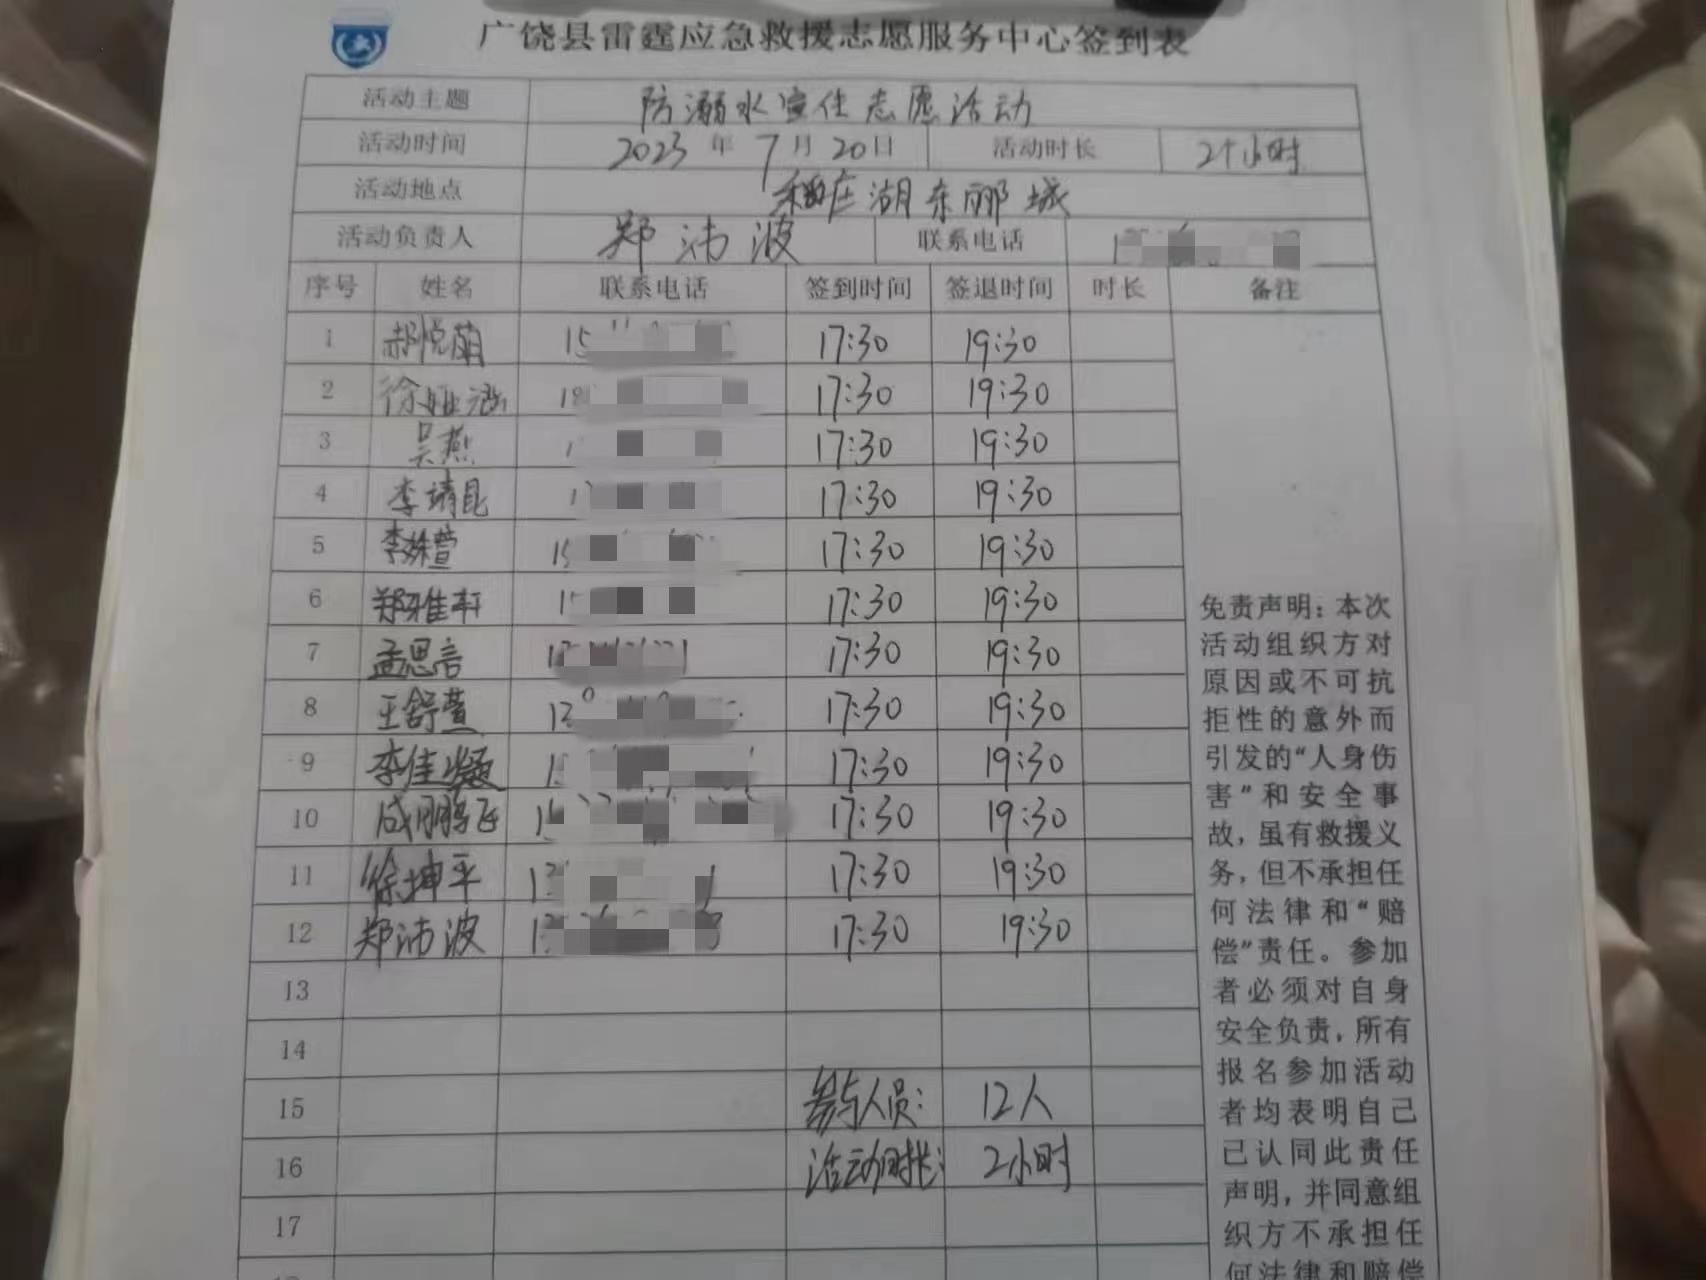 广饶县雷霆应急救援志愿服务中心签到表
活动主题 防溺水宣传志愿活动
活动时间 2023年7月20日 活动时长 2个小时
活动地点 稻庄湖东郦城
活动负责人 郑沛波 联系电话
序号 姓名 联系电话 签到时间 签退时间 时长 备注
1 郝悦萌 15 17:30 19:30
2 徐娅涵 18 17:30 19:30
3 吴燕 1 17:30 19:30
4 李靖昆 1 17:30 19:30
5 李姝萱 15 17:30 19:30
6 郑雅轩 15 17:30 19:30
7 孟思言 1 17:30 19:30
8 王舒萱 13 17:30 19:30
9 李佳凝 1 17:30 19:30
10 成鹏飞 1 17:30 19:30
11 徐坤平 13 17:30 19:30
12 郑沛波 13 17:30 19:30
13
14
15 参与人员: 12人
16 活动时长: 2小时
17
免责声明：本次
活动组织方对
原因或不可抗
拒性的意外而
引发的“人身伤
害”和安全事
故，虽有救援义
务，但不承担任
何法律和“赔
偿”责任。参加
者必须对自身
安全负责，所有
报名参加活动
者均表明自己
已认同此责任
声明，并同意组
织方不承担任
何法律和赔偿